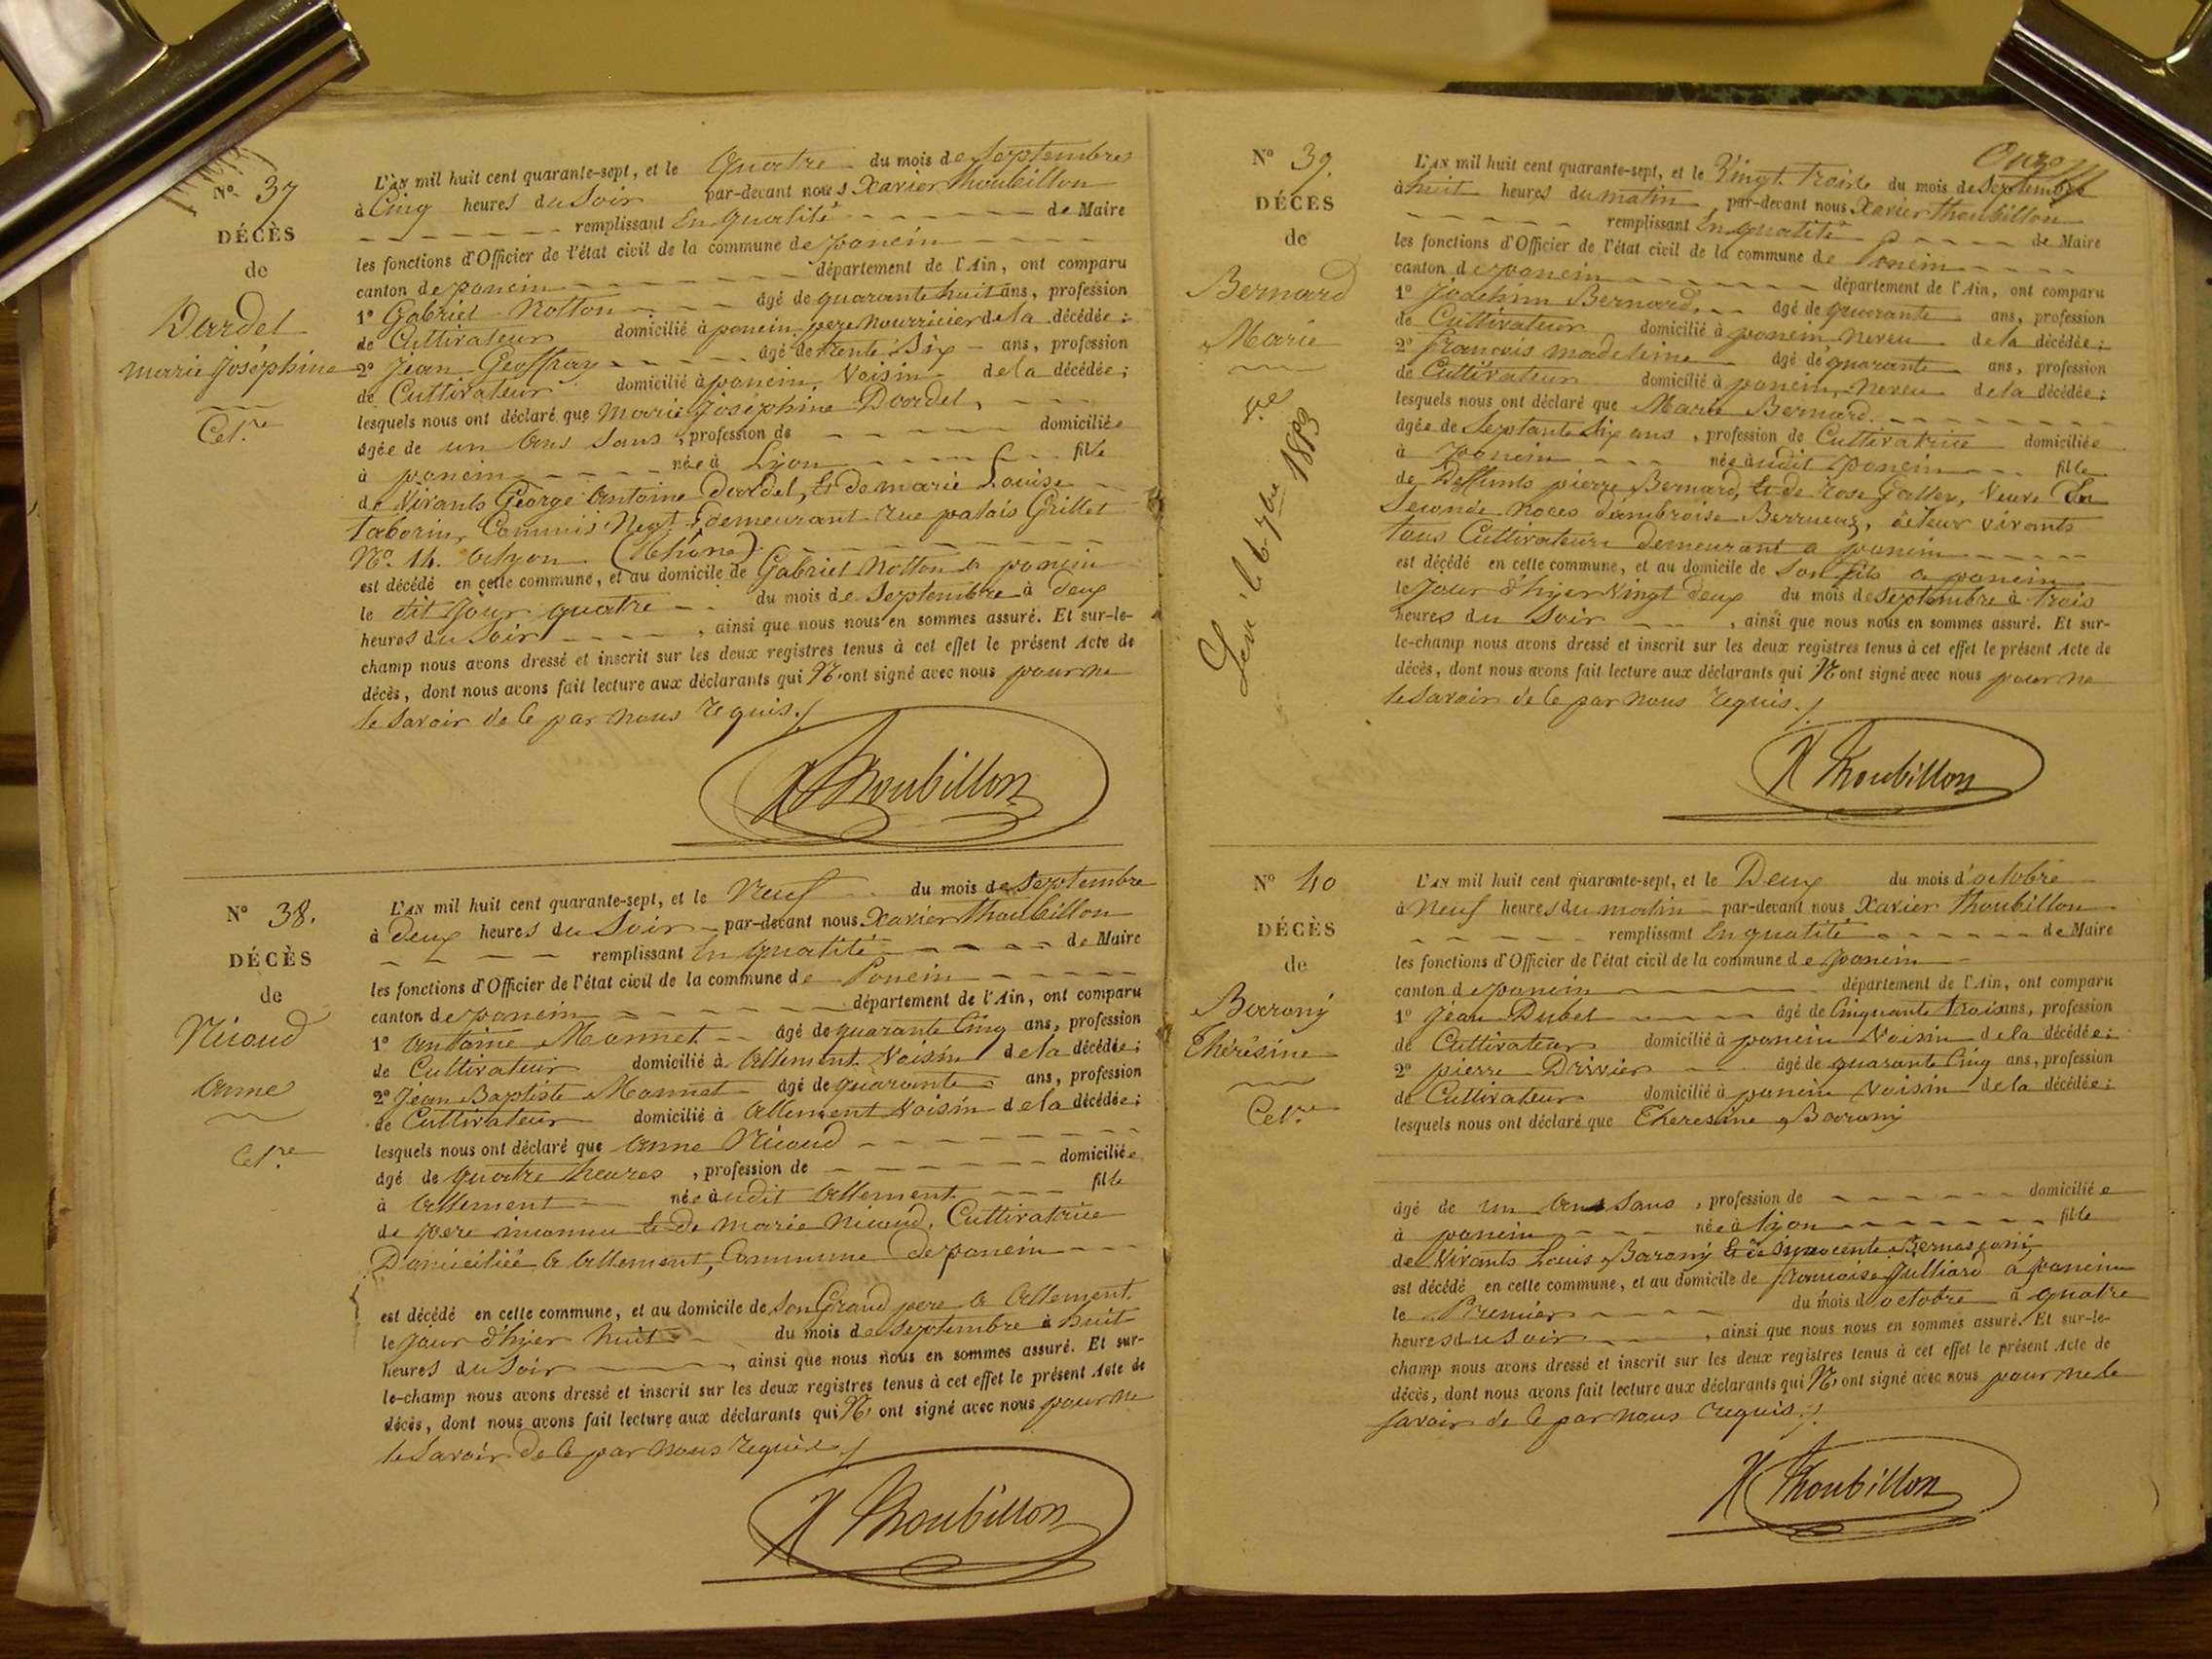 Nº 37
DÉCÈS
de
Dardel
marie joséphine
Cel.re
L'AN mil huit cent quarante-sept, et le Quatre du mois de Septembre
à Cinq heures du Soir par-devant nous Xavier Thoubillon
remplissant En qualité de Maire
les fonctions d'Officier de l'état civil de la commune de poncin
canton de poncin département de l'Ain, ont comparu
1º Gabriel Notton âgé de quarante huit ans, profession
de Cultivateur domicilié à poncin, pere nourricier de la décédée;
2º Jean Geoffray âgé de trente Six ans, profession
de Cultivateur domicilié à poncin Voisin de la décédée;
lesquels nous ont déclaré que Marie Joséphine Dardel,
âgée de un ans Sans, profession de domiciliée
à poncin née à Lyon fille
de Vivants George Antoine Dardel, Et de marie Louise
Taborin, Commis Negt. demeurant rue palais Grillet
Nº. 14. a Lyon (Rhône)
est décédé en cette commune, et au domicile de Gabriel Notton a poncin
le dit Jour quatre du mois de Septembre à deux
heures du Soir, ainsi que nous nous en sommes assuré. Et sur-le-
champ nous avons dressé et inscrit sur les deux registres tenus à cet effet le présent Acte de
décès, dont nous avons fait lecture aux déclarants qui N'ont signé avec nous pour ne
le Savoir de Ce par nous requis./
X Thoubillon
Nº 38.
DÉCÈS
de
Nicoud
Anne
Cel.re
L'AN mil huit cent quarante-sept, et le Neuf du mois de Septembre
à deux heures du Soir par-devant nous Xavier Thoubillon
remplissant En qualité de Maire
les fonctions d'Officier de l'état civil de la commune de Poncin
canton de poncin département de l'Ain, ont comparu
1º Antoine Monnet âgé de quarante Cinq ans, profession
de Cultivateur domicilié à Allement Voisin de la décédée;
2º Jean Baptiste Monnet âgé de quarante ans, profession
de Cultivateur domicilié à Allement Voisin de la décédée;
lesquels nous ont déclaré que Anne Nicoud
âgé de quatre heures, profession de domiciliée
à Allement née audit Allement fille
de pere inconnu Et De marie Nicoud, Cultivatrice
Domiciliée a Allement, Commune de poncin
est décédé en cette commune, et au domicile de Son Grand pere a Allement
le Jour d'hyer huit du mois de Septembre à huit
heures du Soir, ainsi que nous nous en sommes assuré. Et sur-
le-champ nous avons dressé et inscrit sur les deux registres tenus à cet effet le présent Acte de
décès, dont nous avons fait lecture aux déclarants qui N'ont signé avec nous pour ne
le Savoir de Ce par nous requis./
X Thoubillon
Onze
Nº 39.
DÉCÈS
de
Bernard
Marie
Levé le 6 7bre 1883
L'AN mil huit cent quarante-sept, et le Vingt Trois du mois de Septembre
à huit heures du matin, par-devant nous Xavier Thoubillon
remplissant En qualité de Maire
les fonctions d'Officier de l'état civil de la commune de Poncin
canton de poncin département de l'Ain, ont comparu
1º Joachim Bernard, âgé de quarante ans, profession
de Cultivateur domicilié à poncin neveu de la décédée;
2º francois madeleine âgé de quarante ans, profession
de Cultivateur domicilié à poncin, neveu de la décédée;
lesquels nous ont déclaré que Marie Bernard
âgée de Septante Six ans, profession de Cultivatrice domiciliée
à poncin née audit poncin fille
de Deffunts pierre Bernard, Et de rose Gallet, Veuve En
Seconde Noces d'ambroise Berrueux, de leur vivants
tous Cultivateurs Demeurant a poncin
est décédé en cette commune, et au domicile de Son fils a poncin
le Jour d'hyer Vingt deux du mois de Septembre à trois
heures du Soir, ainsi que nous nous en sommes assuré. Et sur-
le-champ nous avons dressé et inscrit sur les deux registres tenus à cet effet le présent Acte de
décès, dont nous avons fait lecture aux déclarants qui N'ont signé avec nous pour ne
le Savoir de Ce par nous requis./
X Thoubillon
Nº 40
DÉCÈS
de
Barony
Thérésine
Cel.re
L'AN mil huit cent quarante-sept, et le Deux du mois d'octobre
à Neuf heures du matin par-devant nous Xavier Thoubillon
remplissant En qualité de Maire
les fonctions d'Officier de l'état civil de la commune de poncin
canton de poncin département de l'Ain, ont comparu
1º Jean Dubet âgé de Cinquante trois ans, profession
de Cultivateur domicilié à poncin Voisin de la décédée;
2º pierre Drivier âgé de quarante Cinq ans, profession
de Cultivateur domicilié à poncin Voisin de la décédée;
lesquels nous ont déclaré que Theresine Barony
âgé de un ans Sans, profession de domiciliée
à poncin née à lyon fille
de Vivants Louis Barony Et de Innocente Bernasconi
est décédé en cette commune, et au domicile de francoise Julliard a poncin
le Premier du mois d'octobre à quatre
heures du Soir, ainsi que nous nous en sommes assuré. Et sur-le-
champ nous avons dressé et inscrit sur les deux registres tenus à cet effet le présent Acte de
décès, dont nous avons fait lecture aux déclarants qui N'ont signé avec nous pour ne le
Savoir de Ce par nous requis./
X Thoubillon